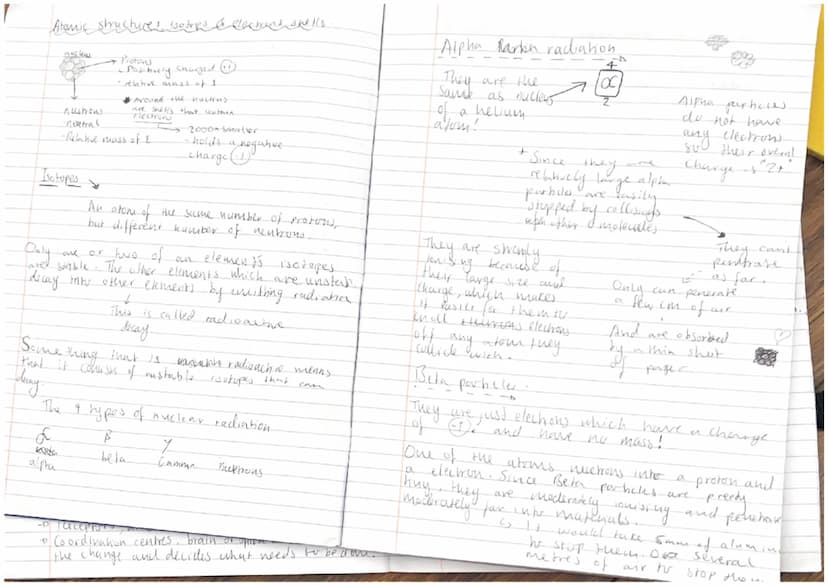 Atomic structures, isotopes & electrons shells
nucleus
Protons
Positively charged +1
relative mass of 1
Around the nucleus
are shells that contain
electrons
neutrons
neutral
Relative mass of 1
2000x smaller
holds a negative
charge -1
Isotopes
An atom of the same number of protons,
but different number of neutrons.
Only one or two of an element's isotopes
are stable. The other elements which are unstable
decay into other elements by emitting radiation
This is called radioactive
decay
Something that is radioactive means
that it consists of unstable isotopes that can
decay.
The 4 types of nuclear radiation
α β γ
alpha beta Gamma neutrons
receptors,
Coordination centres, brain or
the change and decides what needs to be done.
Alpha radiation
They are the
same as nucleus
of a helium
atom!
4
α
2
Alpha particles
do not have
any electrons
so their overall
charge is "2+"
+ Since they are
relatively large alpha
particles are easily
stopped by collisions
with other molecules
They can't
penetrate
as far.
They are strongly
ionising because of
their large size and
charge, which makes
it easier for them to
knock electrons
off any atom they
collide with.
Only can penerate
a few cm of air
And are absorbed
by a thin sheet
of paper
Beta particles.
They are just electrons which have a charge
of -1 and have no mass!
One of the atoms neutrons into a proton and
a electron. Since Beta particles are pretty
tiny, they are moderately ionising and penetrate
moderately far into materials.
It would take 5mm of alumin
to stop them. Or several
metres of air to stop them